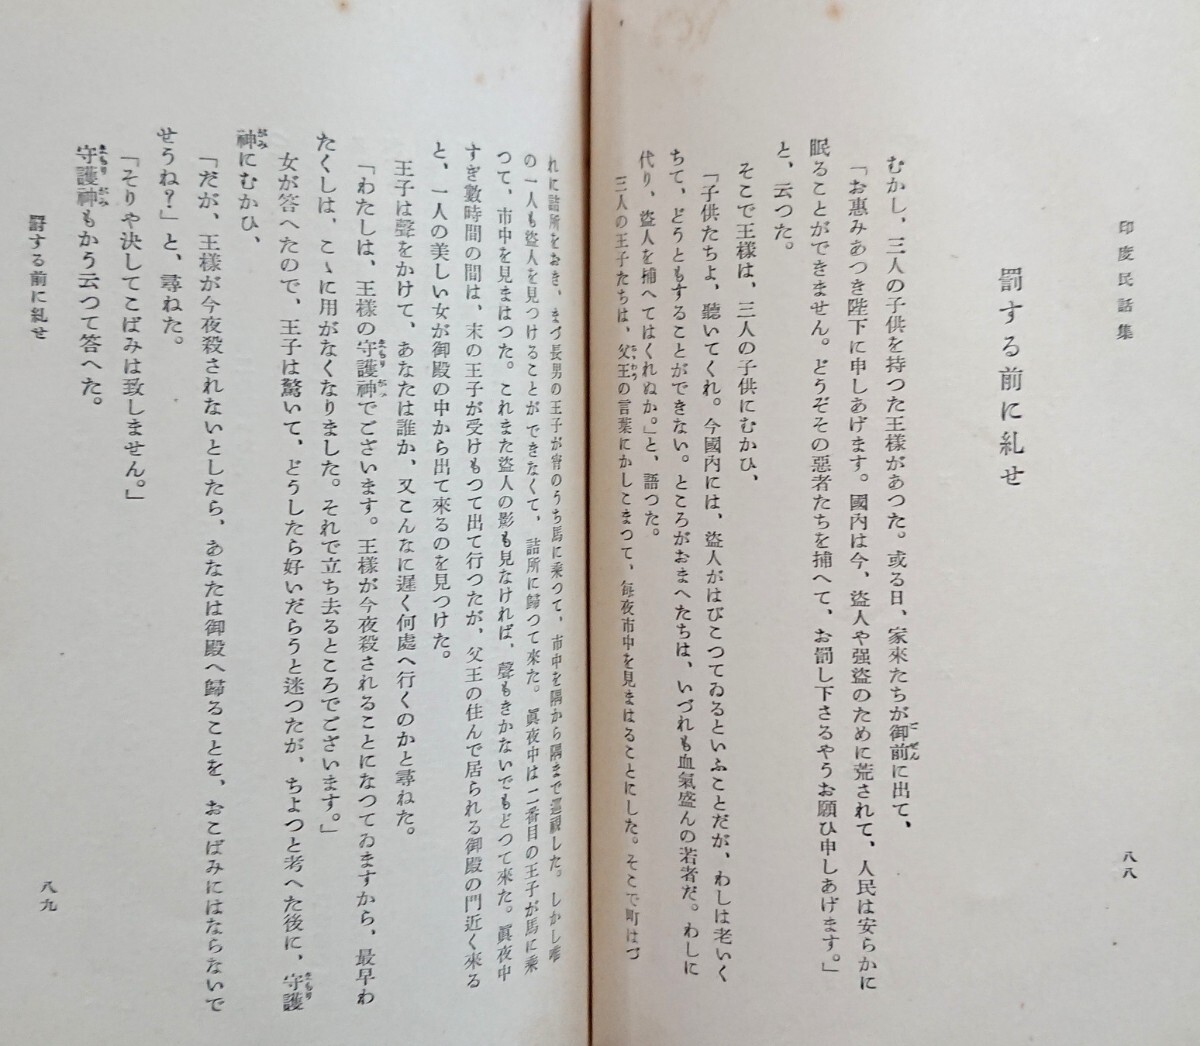 印度民話集
八八
罰する前に糺せ
むかし、三人の子供を持つた王様があつた。或る日、家來たちが御前に出て、
「お惠みあつき陛下に申しあげます。國內は今、盜人や强盜のために荒されて、人民は安らかに
眠ることができません。どうぞその惡者たちを捕へて、お罰し下さるやうお願ひ申しあげます。」
と、云つた。
そこで王様は、三人の子供にむかひ、
「子供たちよ、聽いてくれ。今國內には、盜人がはびこつてゐるといふことだが、わしは老いく
ちて、どうともすることができない。ところがおまへたちは、いづれも血氣盛んの若者だ。わしに
代り、盜人を捕へてはくれぬか。」と、語つた。
三人の王子たちは、父王の言葉にかしこまつて、每夜市中を見まはることにした。そこで町はづ
れに詰所をおき、まづ長男の王子が宵のうち馬に乘つて、市中を隅から隅まで巡視した。しかし唯
の一人も盜人を見つけることができなくて、詰所に歸つて來た。眞夜中は二番目の王子が馬に乘
つて、市中を見まはつた。これまた盜人の影も見なければ、聲もきかないでもどつて來た。眞夜中
すぎ數時間の間は、末の王子が受けもつて出て行つたが、父王の住んで居られる御殿の門近く來る
と、一人の美しい女が御殿の中から出て來るのを見つけた。
王子は聲をかけて、あなたは誰か、又こんなに遲く何處へ行くのかと尋ねた。
「わたしは、王様の守護神でございます。王様が今夜殺されることになつてゐますから、最早わ
たくしは、こゝに用がなくなりました。それで立ち去るところでございます。」
女が答へたので、王子は驚いて、どうしたら好いだらうと迷つたが、ちよつと考へた後に、守護
神にむかひ、
「だが、王様が今夜殺されないとしたら、あなたは御殿へ歸ることを、おこばみにはならないで
せうね？」と、尋ねた。
「そりや決してこばみは致しません。」
守護神もかう云つて答へた。
罰する前に糺せ
八九